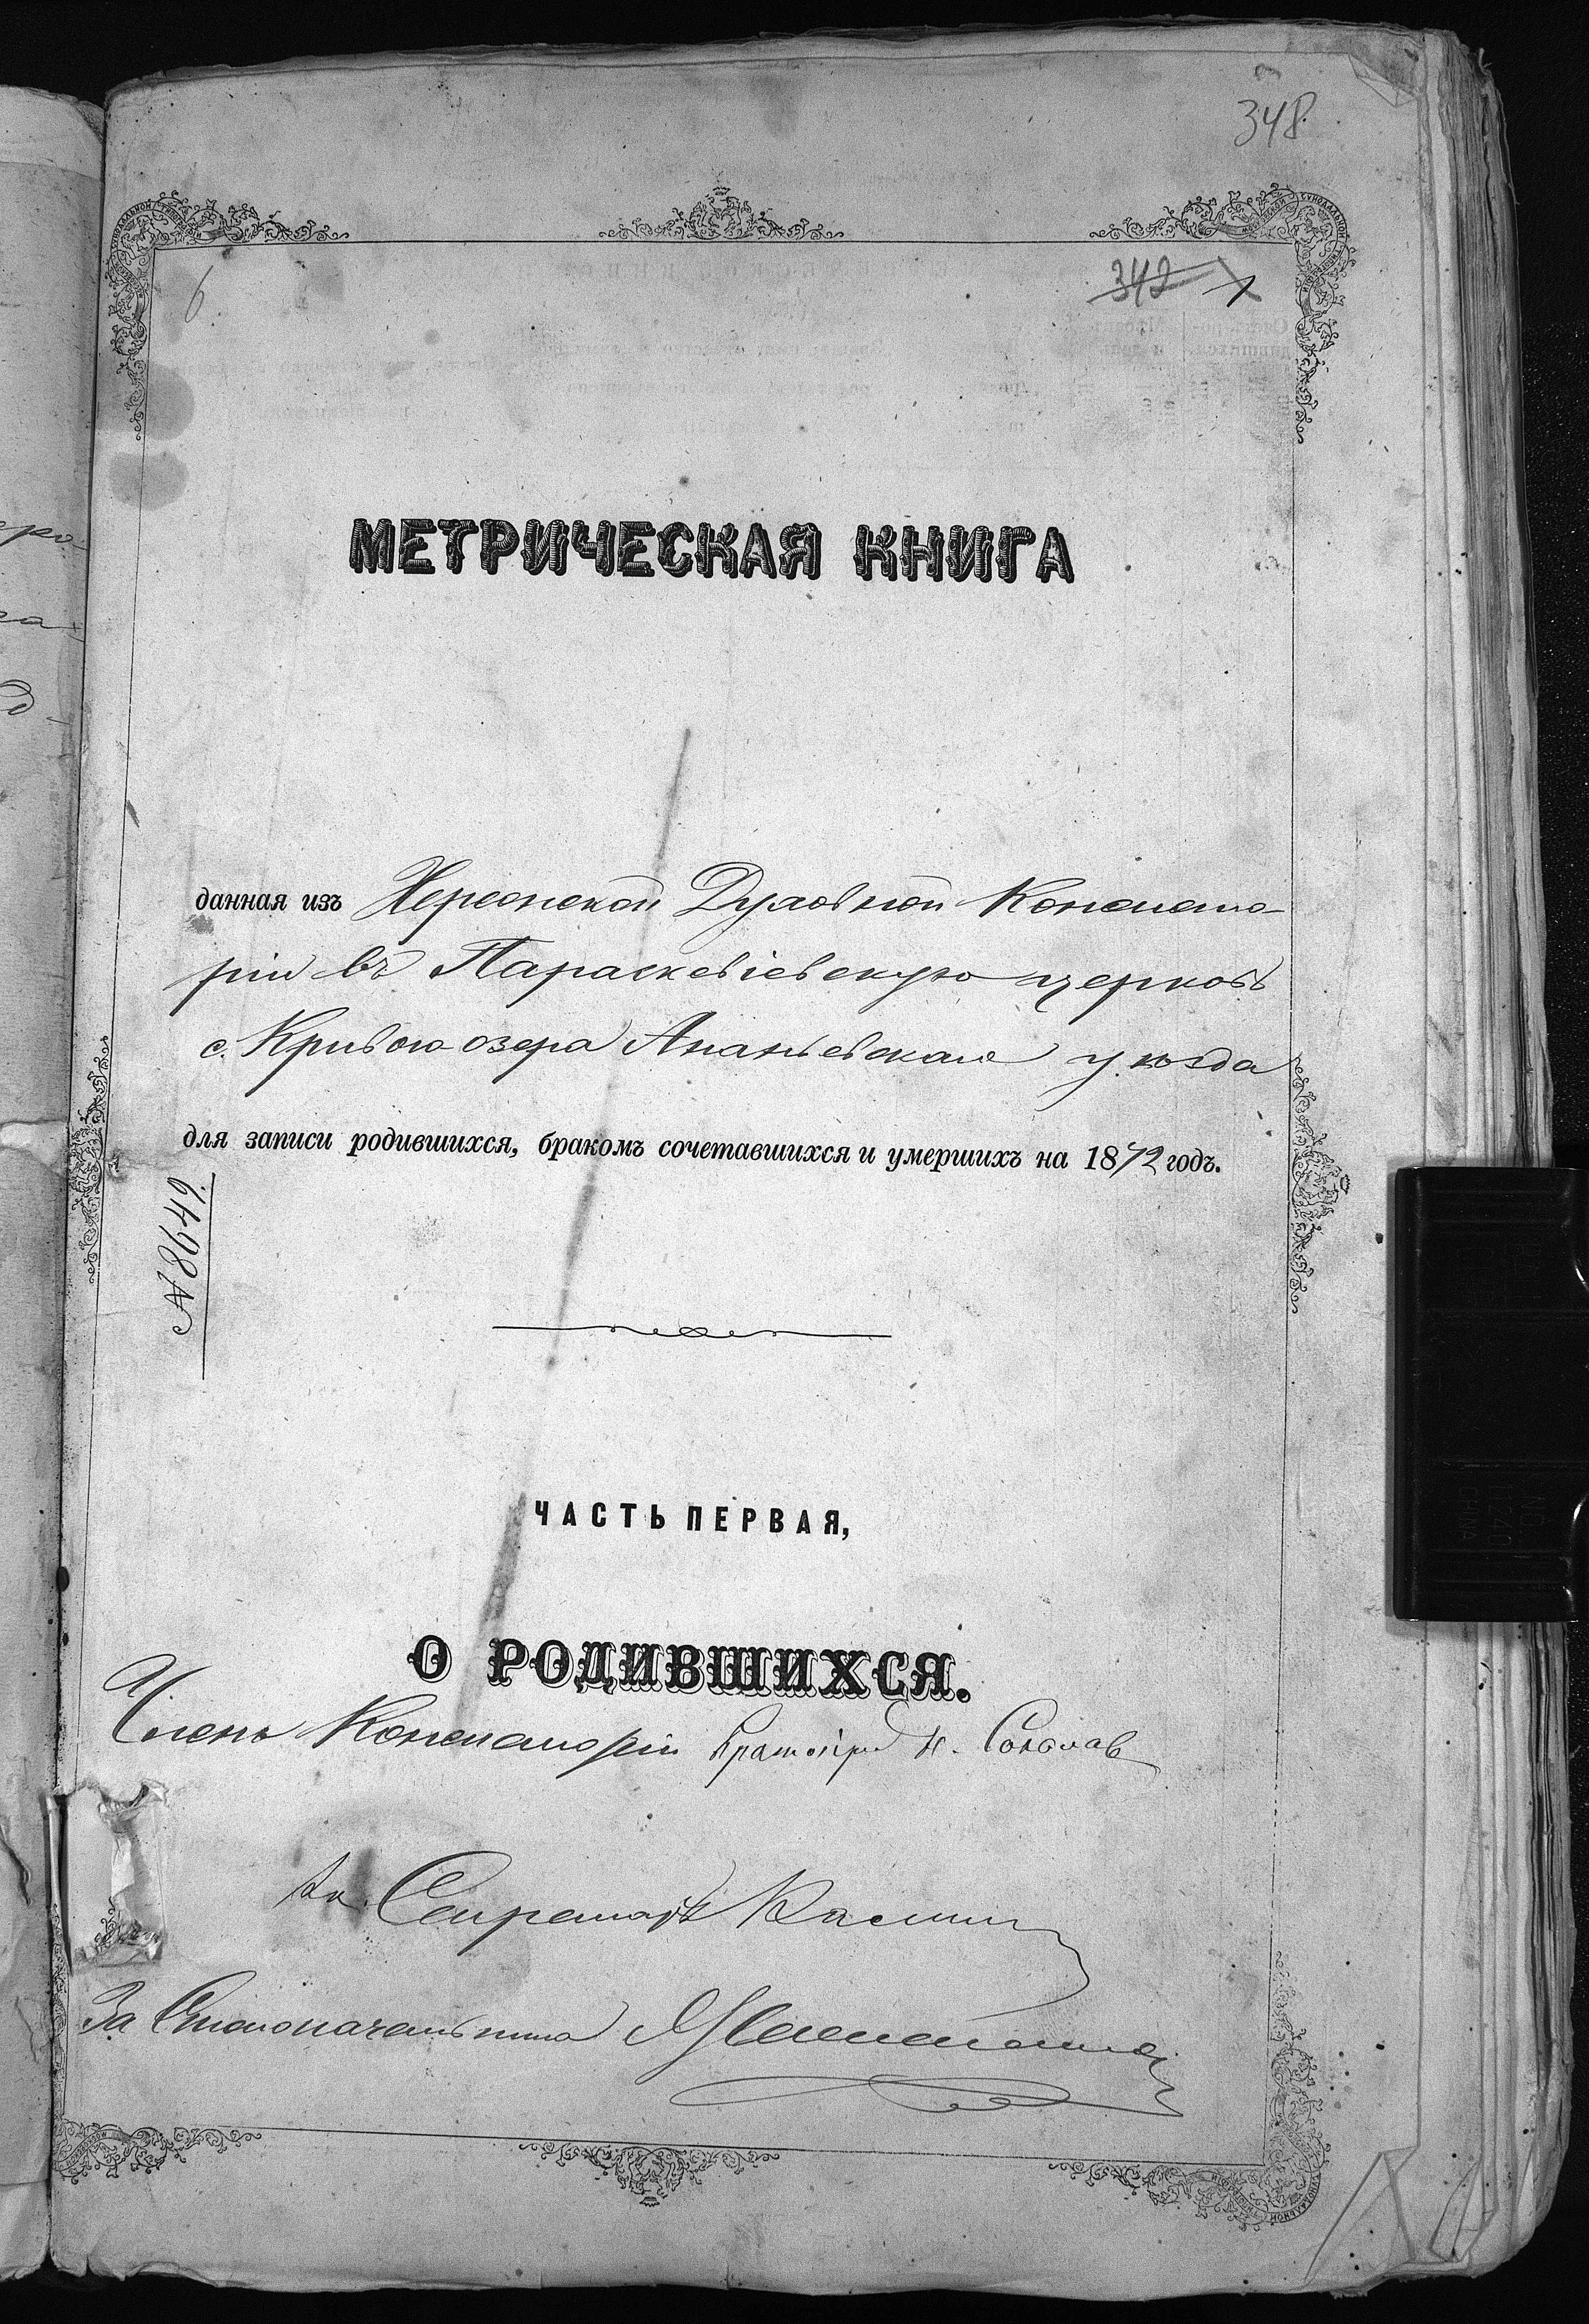 348
6
342
МЕТРИЧЕСКАЯ КНИГА
данная изъ Херсонской Духовной Консисто-
ріи въ Параскевіевскую церковь
с. Кривого озера Ананьевскаго уѣзда
для записи родившихся, бракомъ сочетавшихся и умершихъ на 1872 годъ.
№ 8649.
ЧАСТЬ ПЕРВАЯ,
О РОДИВШИХСЯ.
Членъ Консисторіи Протоіерей Н. Соколов
Секретарь
За Столоначальника